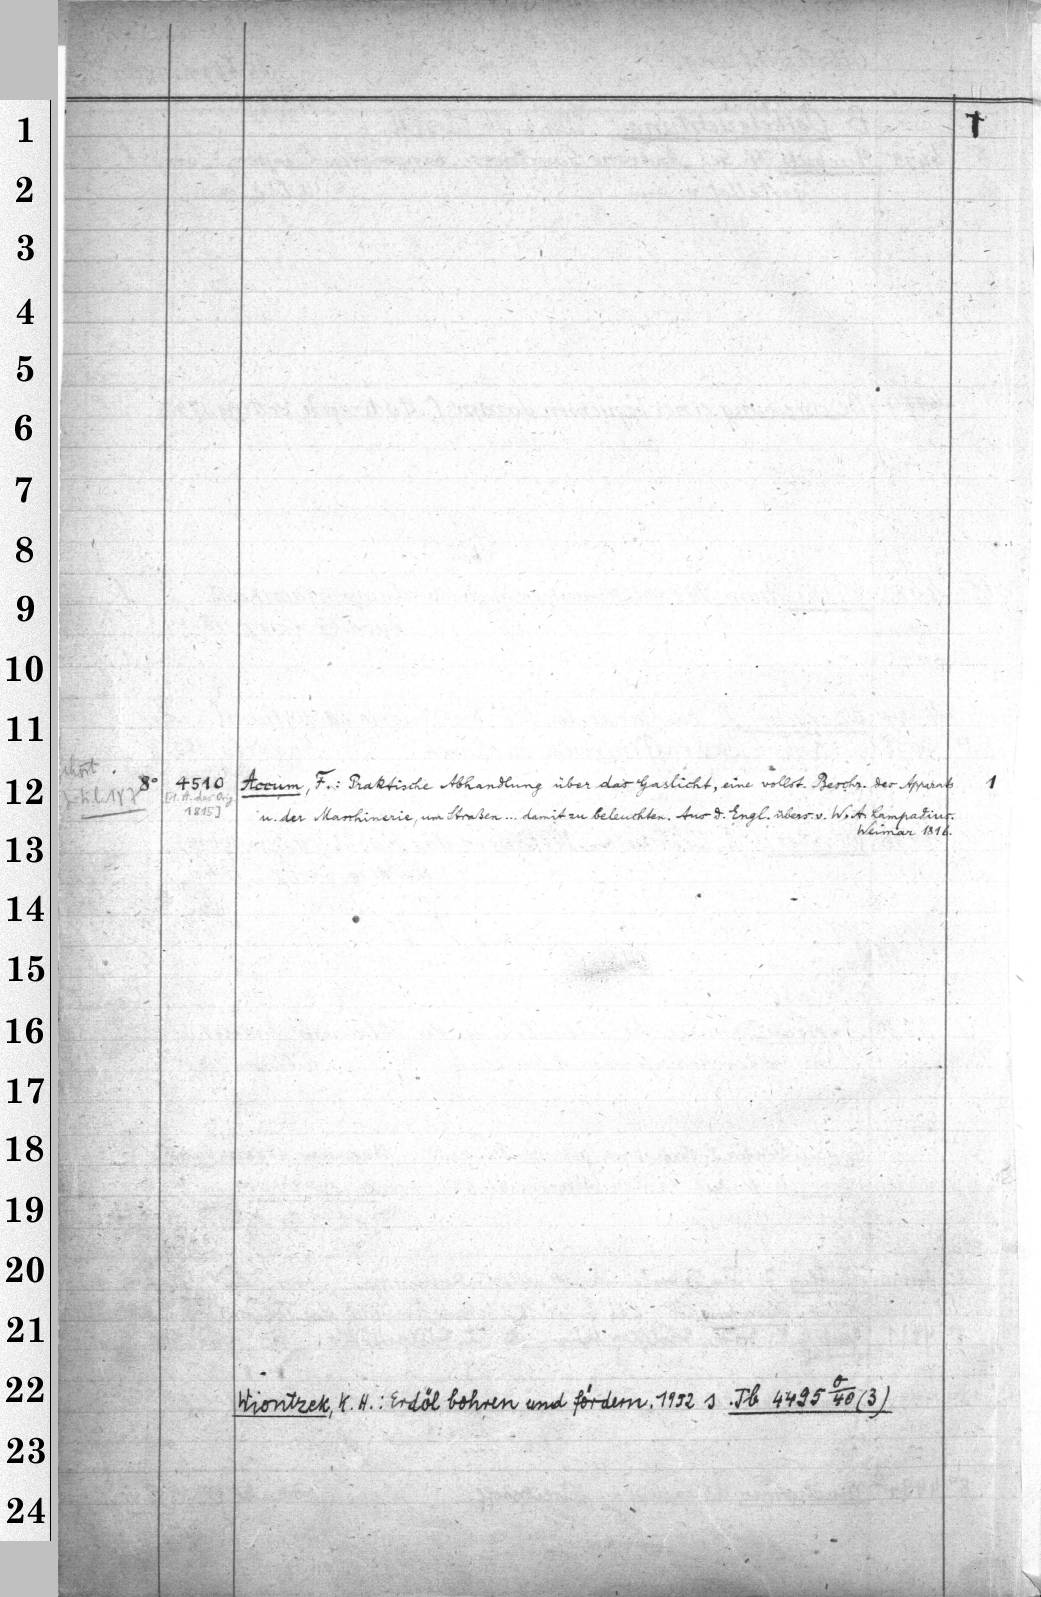 1
†
2
3
4
5
6
7
8
9
10
11
12
8° 4510 Accum, F.: Praktische Abhandlung über das Gaslicht, eine vollst. Beschr. des Apparats 1
[1. A. des Orig.
1815]
u. der Maschinerie, um Straßen ... damit zu beleuchten. Aus d. Engl. übers. v. W. A. Lampadius.
Weimar 1816.
13
14
15
16
17
18
19
20
21
22
Wiontzek, K. H.: Erdöl bohren und fördern. 1952 s. Tb 4495 o/40 (3)
23
24